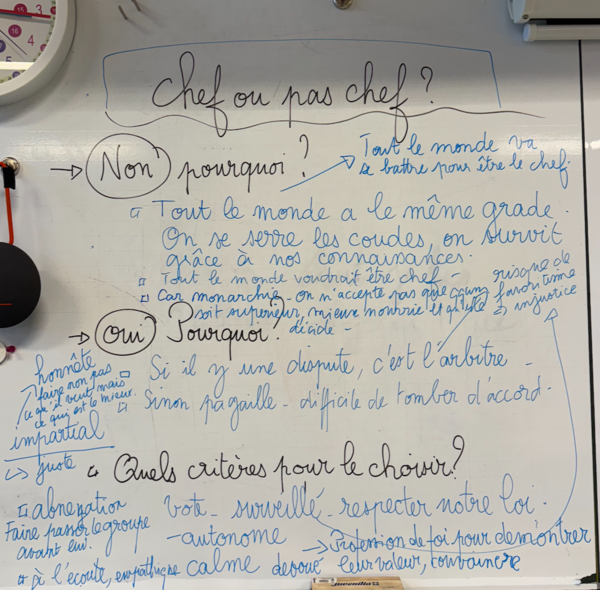 Chef ou pas chef ?
→ Non pourquoi ?
Tout le monde va
se battre pour être le chef.
Tout le monde a le même grade.
On se serre les coudes, on survit
grâce à nos connaissances.
Tout le monde voudrait être chef -
Car monarchie - on n'accepte pas que
soit supérieur, mieux nourrie et qu'elle
décide -
risque de
favoritisme
→ injustice
→ oui Pourquoi ?
Si il y une dispute, c'est l'arbitre -
Sinon pagaille - difficile de tomber d'accord -
honnête
faire non pas
ce qu'il veut mais
ce qui est le mieux.
impartial
↳ juste
Quels critères pour le choisir ?
vote - surveillé - respecter notre loi.
- autonome
→ Profession de foi pour démontrer
leur valeur, convaincre
abnegation
Faire passer le groupe
avant lui.
à l'écoute, empathique calme
3
4